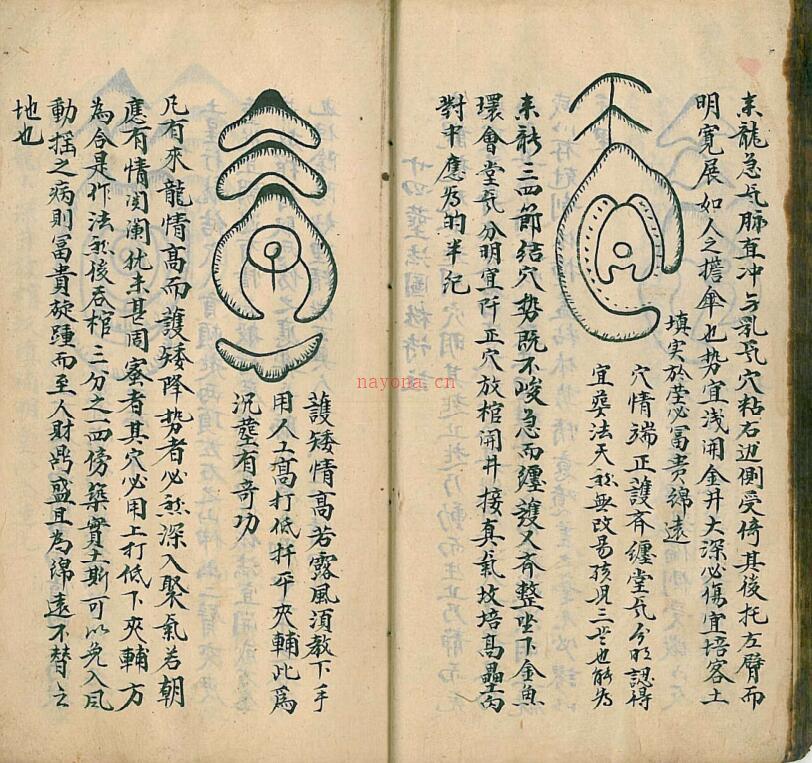 來龍急氣脉直冲与乳氣穴粘右边側受倚其後托左臂而
明寬展如人之擔傘也势宜浅開金井大深必傷宜培客土
填实於茔必富贵綿遠
穴情端正護齐纏堂氣分明認得
宜塟法天然無改易孩児三岁也能为
来龍三四節结穴势既不峻急而纏護又齊整坐下金魚
環會堂氣分明宜阡正穴放棺開井接真氣坟培高壘
對中應为的半纪
護矮情高若露風須教下手
用人工高打低扦平夾輔此爲
沉塟有竒功
凡有來龍情高而護矮降势者必然深入聚氣若朝
應有情関闌状未甚周蜜者其穴必用上打低下夾輔方
為合是作法然後吞棺三分之一四傍築實土斯可以免入風
動摇之病則冨貴旋踵而至人財炽盛且为綿遠不替之
地也
nayona.cn